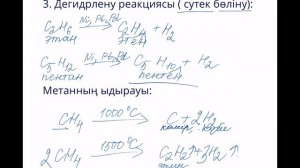 3. Дегидрлену реакциясы ( сутек бөліну):
C₂H₆ Ni, Pt, Pd → C₂H₄ + H₂
этан этен
C₅H₁₂ Ni, Pt, Pd → C₅H₁₀ + H₂
пентан пентен
Метанның ыдырауы:
CH₄ 1000°C → C + 2H₂
көмір
2CH₄ 1500°C → C₂H₂↑ + 3H₂↑
этин